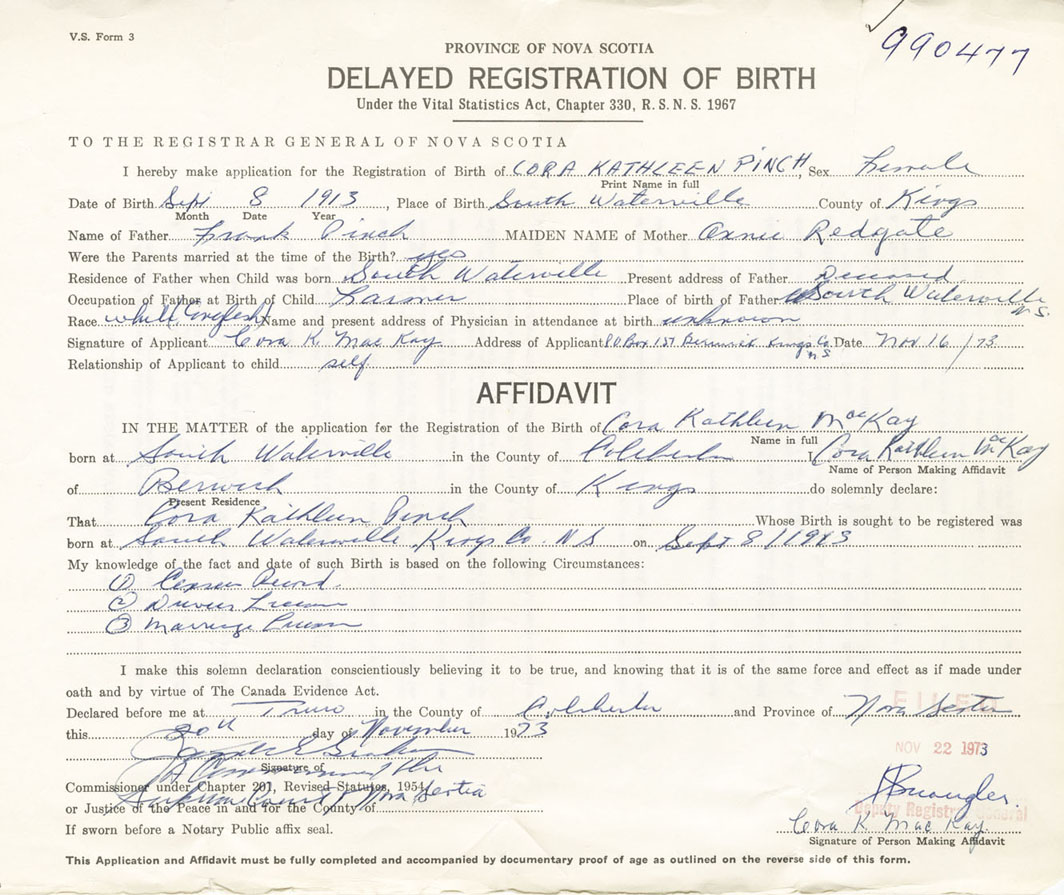 V.S. Form 3
990477
PROVINCE OF NOVA SCOTIA
DELAYED REGISTRATION OF BIRTH
Under the Vital Statistics Act, Chapter 330, R. S. N. S. 1967
TO THE REGISTRAR GENERAL OF NOVA SCOTIA
I hereby make application for the Registration of Birth of CORA KATHLEEN PINCH, Sex Female
Print Name in full
Date of Birth Sept 8 1913, Place of Birth South Waterville County of Kings
Month Date Year
Name of Father Frank Pinch MAIDEN NAME of Mother Annie Redgate
Were the Parents married at the time of the Birth? yes
Residence of Father when Child was born South Waterville Present address of Father Deceased
Occupation of Father at Birth of Child Farmer Place of birth of Father South Waterville N.S.
Race white (English) Name and present address of Physician in attendance at birth unknown
Signature of Applicant Cora K. MacKay Address of Applicant P.O Box 157 Berwick Kings Co. N S Date Nov 16/73
Relationship of Applicant to child self
AFFIDAVIT
IN THE MATTER of the application for the Registration of the Birth of Cora Kathleen MacKay
Name in full
born at South Waterville in the County of Colchester I Cora Kathleen MacKay
Name of Person Making Affidavit
of Berwick in the County of Kings do solemnly declare:
Present Residence
That Cora Kathleen Pinch Whose Birth is sought to be registered was
born at South Waterville Kings Co. N S on Sept 8/1913
My knowledge of the fact and date of such Birth is based on the following Circumstances:
① Census Record
② Drivers License
③ Marriage License
I make this solemn declaration conscientiously believing it to be true, and knowing that it is of the same force and effect as if made under
oath and by virtue of The Canada Evidence Act.
Declared before me at Truro in the County of Colchester and Province of Nova Scotia
FILED
this 20th day of November 1973
NOV 22 1973
Signature of
A Commissioner of the
Commissioner under Chapter 201, Revised Statutes, 1954
Supreme Court of Nova Scotia
or Justice of the Peace in and for the County of
Deputy Registrar General
If sworn before a Notary Public affix seal.
Cora K MacKay
Signature of Person Making Affidavit
This Application and Affidavit must be fully completed and accompanied by documentary proof of age as outlined on the reverse side of this form.